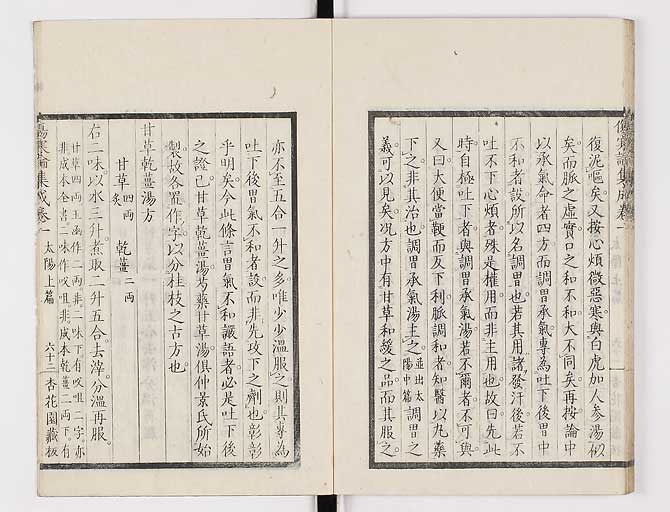 復泥嘔矣又按心煩微惡寒與白虎加人參湯似
矣而脈之虛實口之和不和大不同矣再按論中
以承氣命者四方而調胃承氣專為吐下後胃中
不和者設所以名調胃也若其用諸發汗後若不
吐不下心煩者殊是權用而非主用也故曰先此
時自極吐下者與調胃承氣湯若不爾者不可與
又曰大便當鞕而反下利脈調和者知醫以丸藥
下之非其治也調胃承氣湯主之並出太陽中篇調胃之
義可以見矣況方中有甘草和緩之品而其服之
亦不至五合一升之多唯少少溫服之則其專為
吐下後胃氣不和者設而非先攻下之劑也彰彰
乎明矣今此條言胃氣不和讝語者必是吐下後
之證已甘草乾薑湯芍藥甘草湯俱仲景氏所始
製故各置作字以分桂枝之古方也
甘草乾薑湯方
甘草四兩炙 乾薑二兩
右二味以水三升煮取二升五合去滓分溫再服
甘草四兩玉函作二兩非二味下有㕮咀二字亦
非成本全書二味作㕮咀非成本乾薑二兩下有
傷寒論集成卷一 太陽上篇 六十二 杏花園藏板